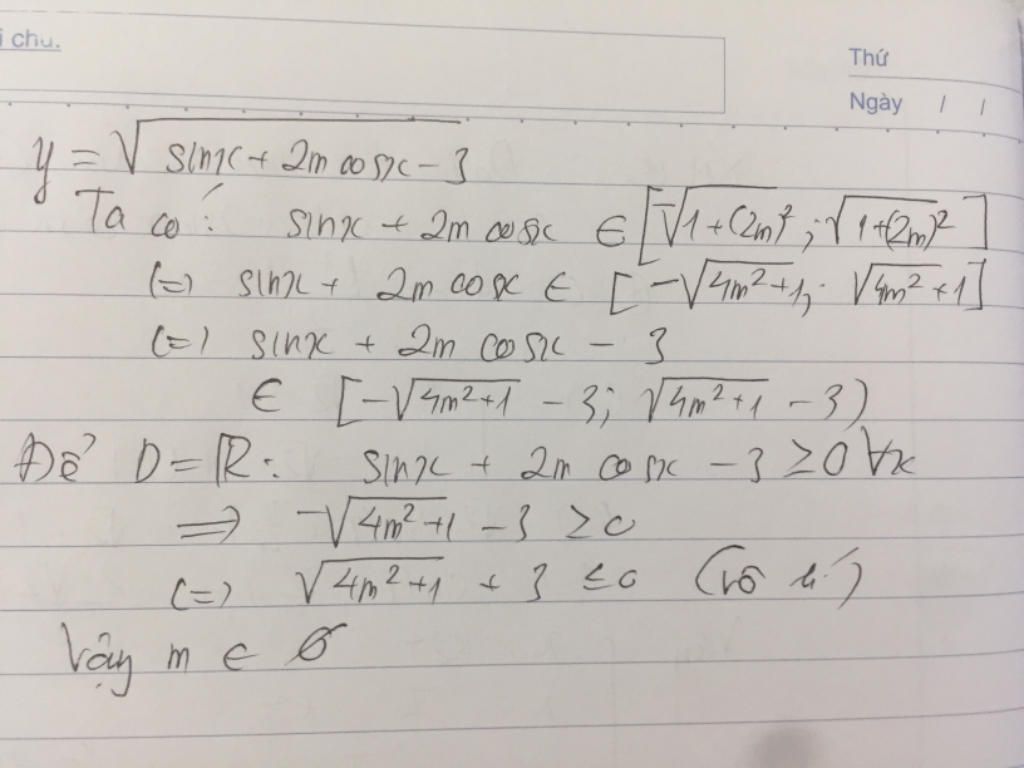 i chu.
Thứ
Ngày / /
y = √(sinx + 2m cosx - 3)
Ta có: sinx + 2m cosx ∈ [-√(1+(2m)²); √(1+(2m)²)]
(=) sinx + 2m cosx ∈ [-√(4m²+1); √(4m²+1)]
(=) sinx + 2m cosx - 3
∈ [-√(4m²+1) - 3; √(4m²+1) - 3)
Để D = ℝ: sinx + 2m cosx - 3 ≥ 0 ∀x
⟹ -√(4m²+1) - 3 ≥ 0
(=) √(4m²+1) + 3 ≤ 0 (vô lí)
Vậy m ∈ ∅